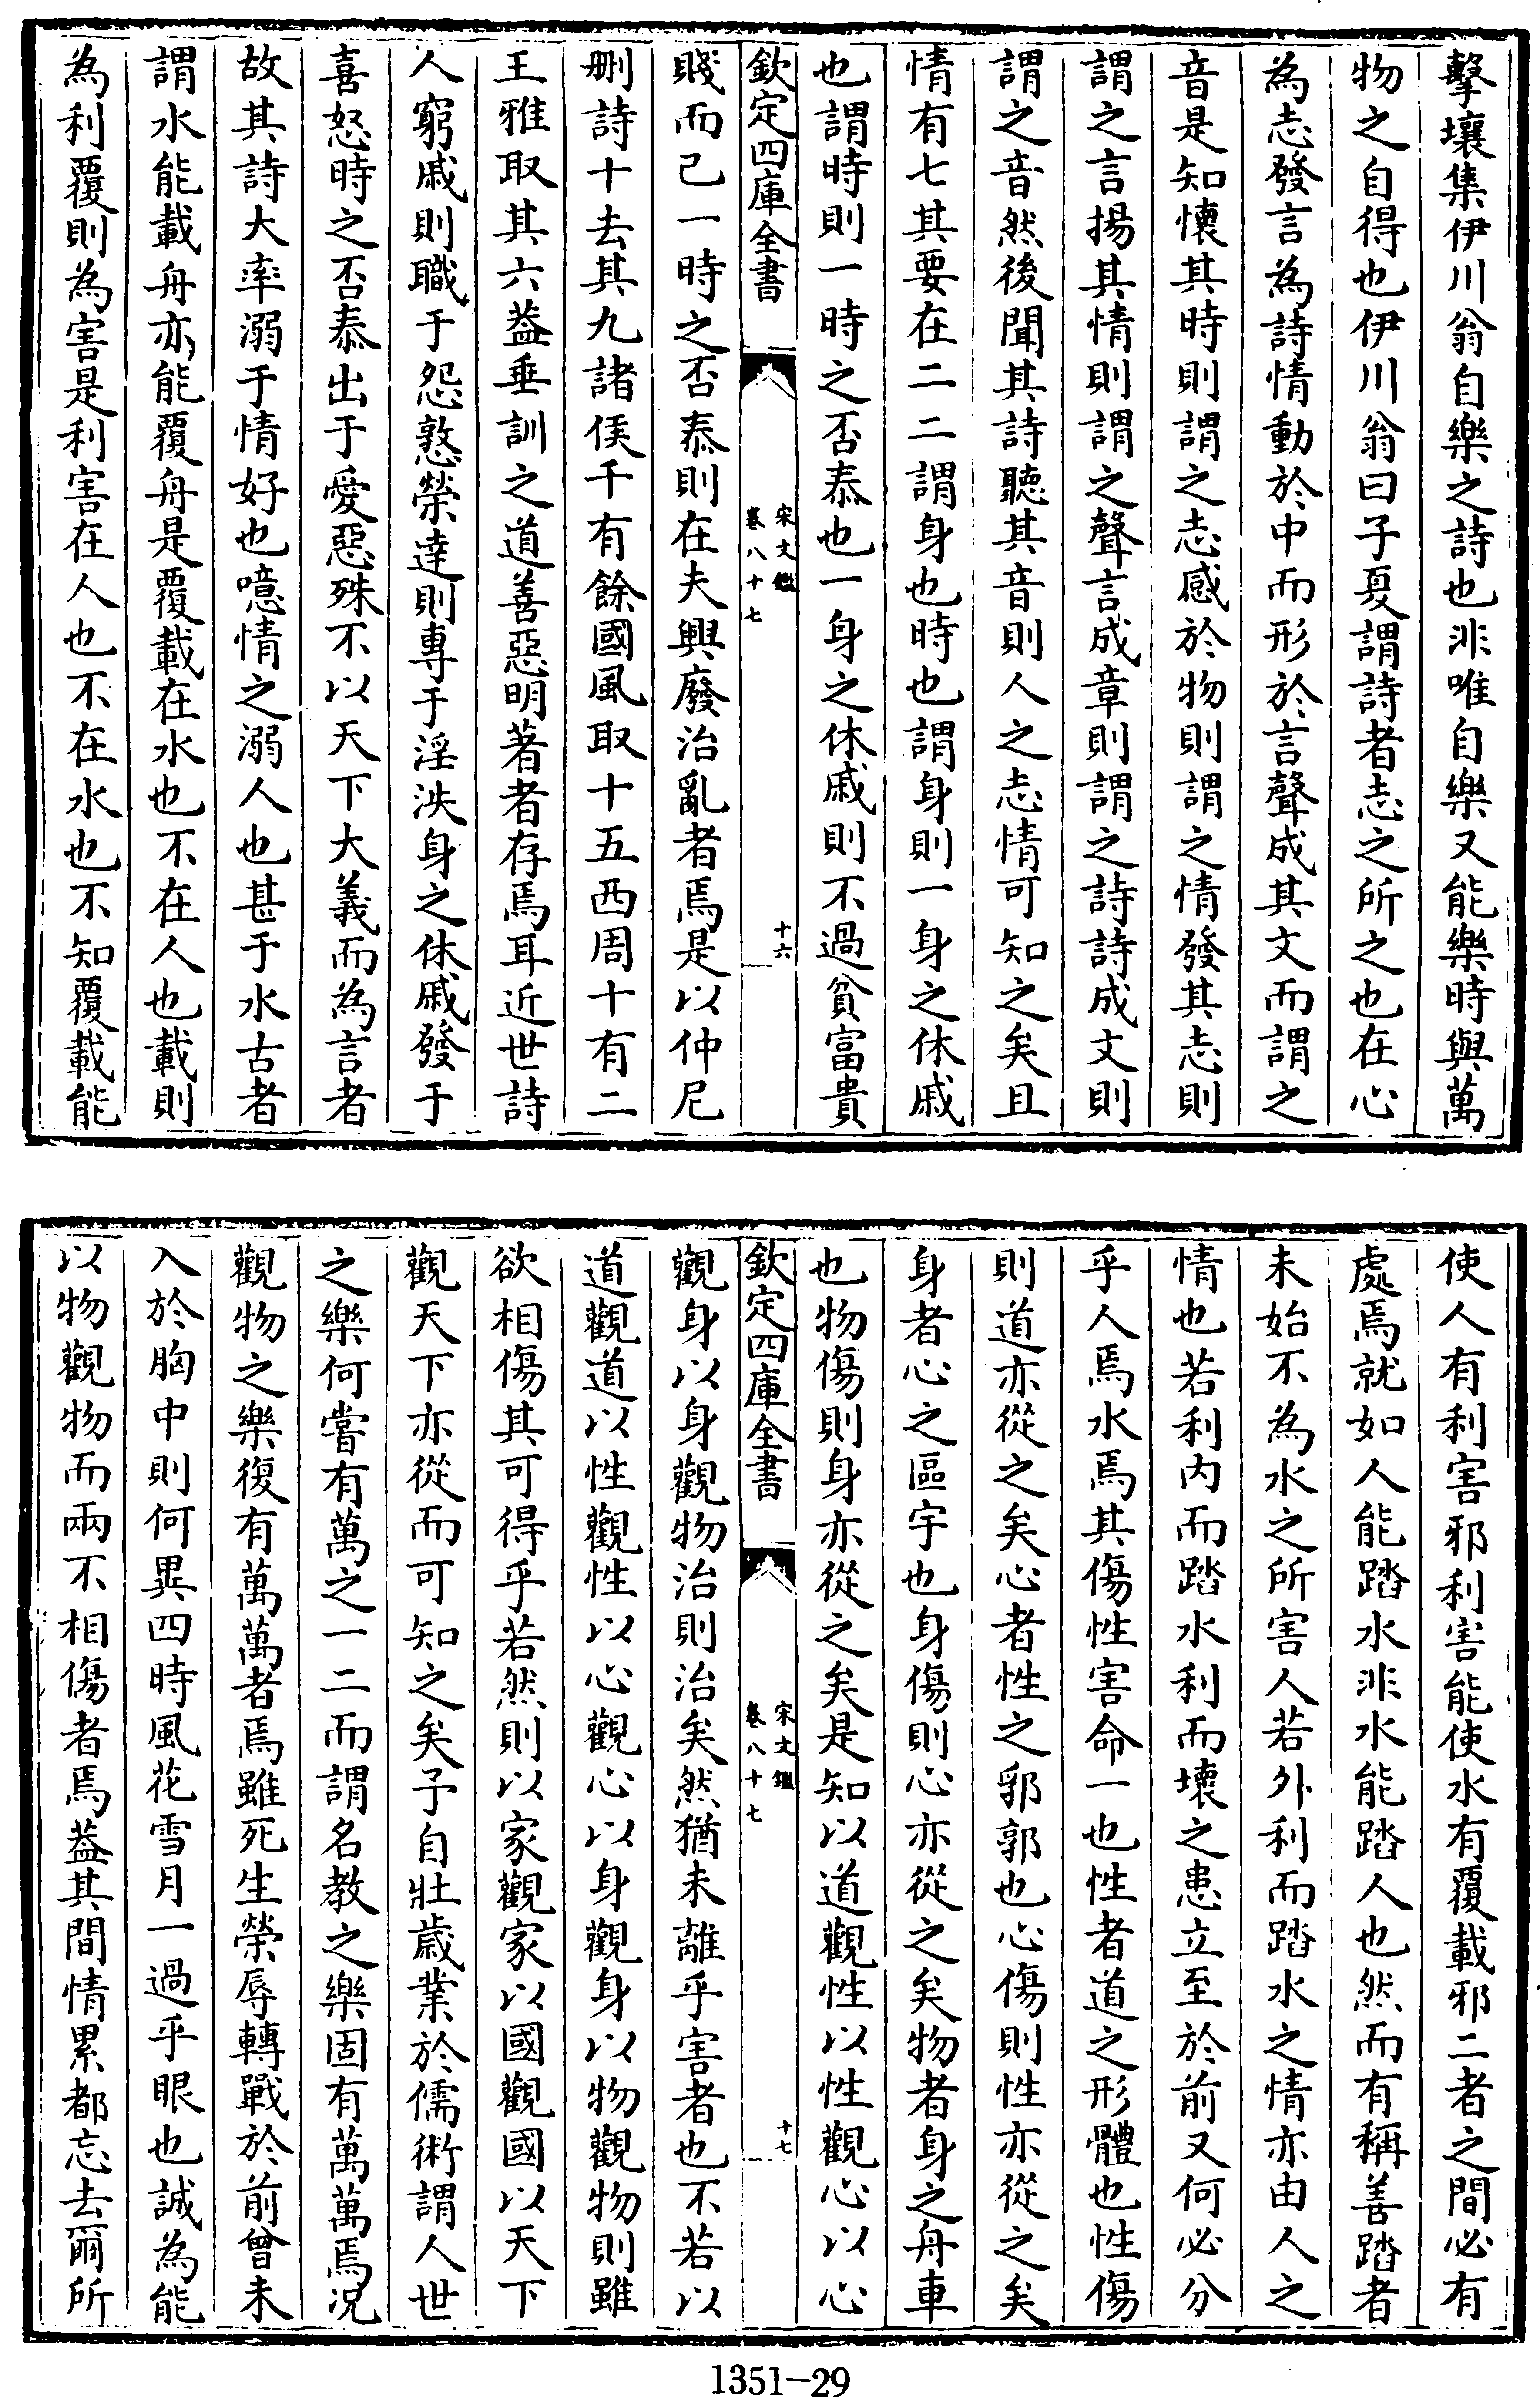 擊壤集伊川翁自樂之詩也非唯自樂又能樂時與萬
物之自得也伊川翁曰子夏謂詩者志之所之也在心
為志發言為詩情動於中而形於言聲成其文而謂之
音是知懷其時則謂之志感於物則謂之情發其志則
謂之言揚其情則謂之聲言成章則謂之詩詩成文則
謂之音然後聞其詩聽其音則人之志情可知之矣且
情有七其要在二二謂身也時也謂身則一身之休戚
也謂時則一時之否泰也一身之休戚則不過貧富貴
欽定四庫全書
宋文鑑
卷八十七
十六
賤而已一時之否泰則在夫興廢治亂者焉是以仲尼
刪詩十去其九諸侯千有餘國風取十五西周十有二
王雅取其六葢垂訓之道善惡明著者存焉耳近世詩
人窮戚則職于怨憝榮達則專于淫泆身之休戚發于
喜怒時之否泰出于愛惡殊不以天下大義而為言者
故其詩大率溺于情好也噫情之溺人也甚于水古者
謂水能載舟亦能覆舟是覆載在水也不在人也載則
為利覆則為害是利害在人也不在水也不知覆載能
使人有利害邪利害能使水有覆載邪二者之間必有
處焉就如人能蹈水非水能蹈人也然而有稱善蹈者
未始不為水之所害人若外利而蹈水之情亦由人之
情也若利內而蹈水利而壞之患立至於前又何必分
乎人焉水焉其傷性害命一也性者道之形體也性傷
則道亦從之矣心者性之郛郭也心傷則性亦從之矣
身者心之區宇也身傷則心亦從之矣物者身之舟車
也物傷則身亦從之矣是知以道觀性以性觀心以心
欽定四庫全書
宋文鑑
卷八十七
十七
觀身以身觀物治則治矣然猶未離乎害者也不若以
道觀道以性觀性以心觀心以身觀身以物觀物則雖
欲相傷其可得乎若然則以家觀家以國觀國以天下
觀天下亦從而可知之矣予自壯歲業於儒術謂人世
之樂何嘗有萬之一二而謂名教之樂固有萬萬焉況
觀物之樂復有萬萬者焉雖死生榮辱轉戰於前曾未
入於胸中則何異四時風花雪月一過乎眼也誠為能
以物觀物而兩不相傷者焉葢其間情累都忘去爾所
1351-29